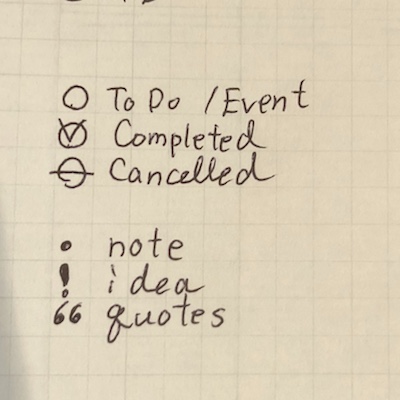 ○ To Do / Event
Completed
Cancelled
• note
! idea
“ quotes